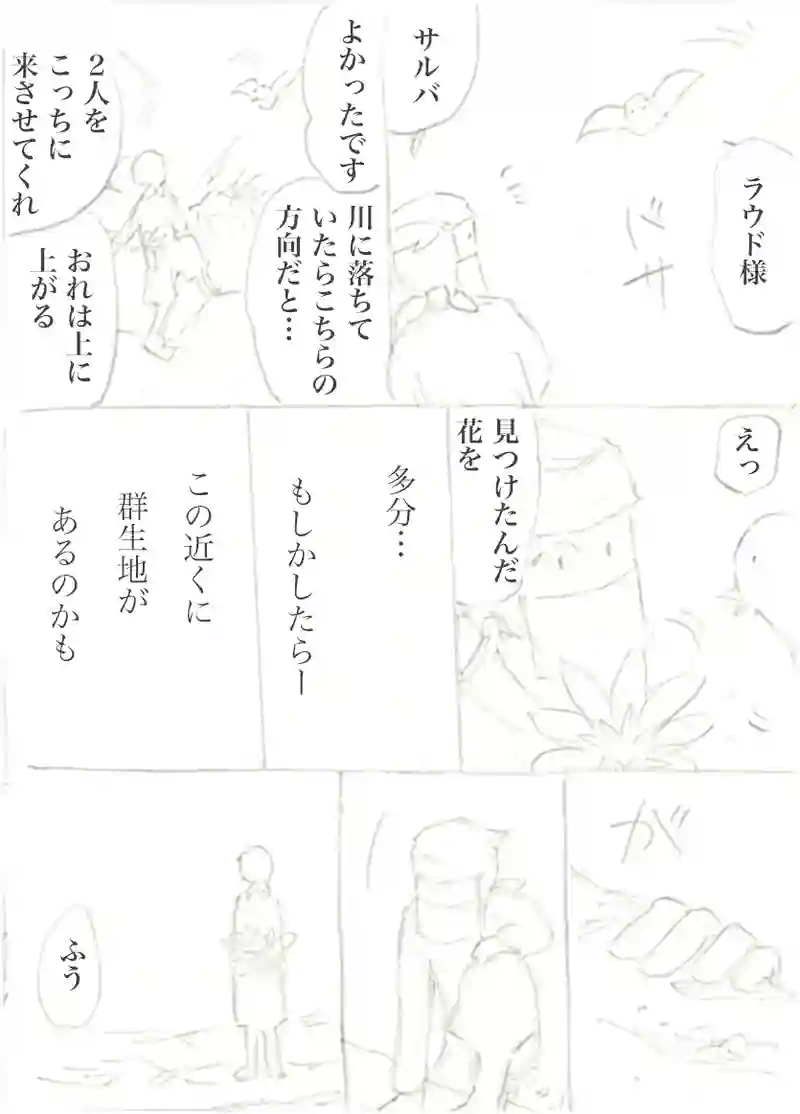 ラウド様
バサ
サルバ
よかったです
川に落ちて
いたらこちらの
方向だと…
２人を
こっちに
来させてくれ
おれは上に
上がる
えっ
見つけたんだ
花を
多分…
もしかしたらー
この近くに
群生地が
あるのかも
が
ふう